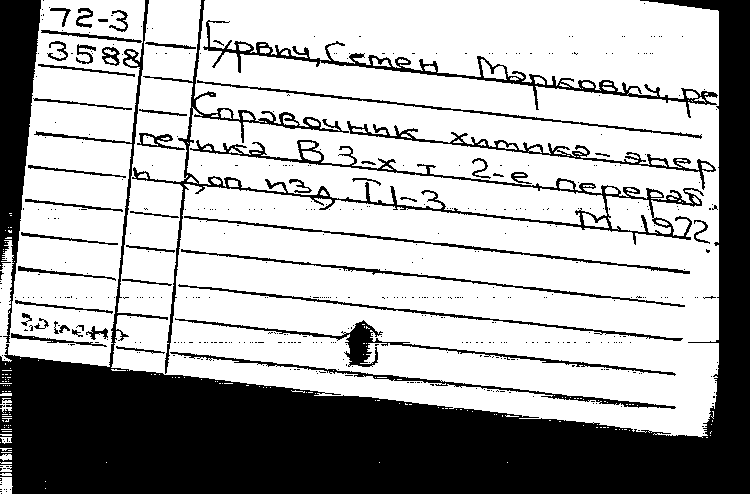 72-3
3588
Гурвич, Семен Маркович, ре
Справочник химика-энер
гетика В 3-х т 2-е, перераб.
и доп изд Т.1-3. М., 1972.